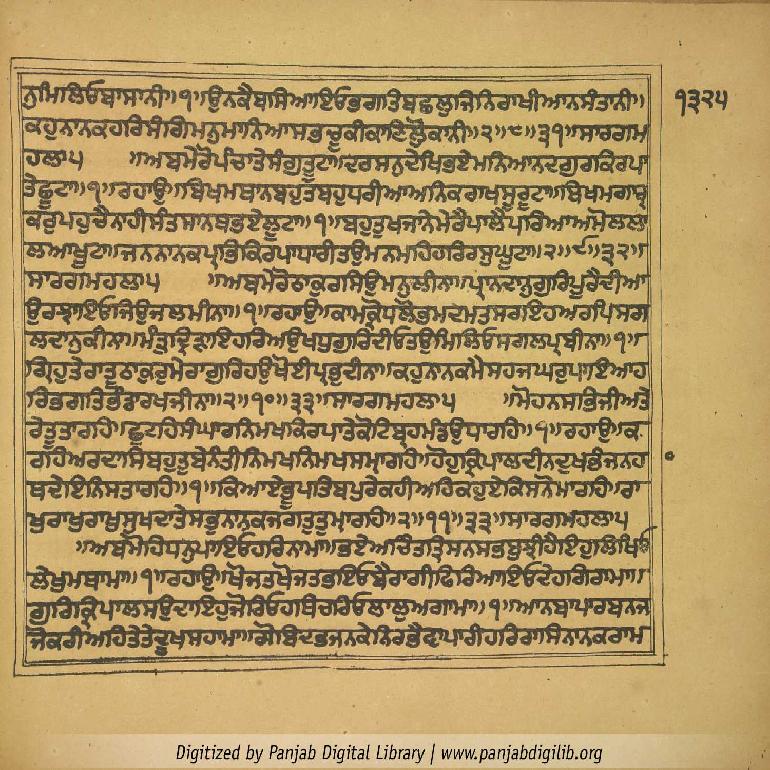 ੧੩੨੫
ਨੁਮਿਲਿਓਬਾਸਾਨੀ॥੧॥ਉਨਕੈਬਾਸਿਆਇਓਭਗਤਿਬਛਲੁਜਿਨਿਰਾਖੀਆਨਸੰਤਾਨੀ॥
ਕਹੁਨਾਨਕਹਰਿਸੰਗਿਮਨੁਮਾਨਿਆਸਭਚੂਕੀਕਾਣਿਲੋੁਕਾਨੀ॥੨॥੮॥੩੧॥ਸਾਰਗਮ
ਹਲਾ੫ ॥ਅਬਮੇਰੋਪੰਚਾਤੇਸੰਗੁਤੂਟਾ॥ਦਰਸਨੁਦੇਖਿਭਏਮਨਿਆਨਦਗੁਰਕਿਰਪਾ
ਤੇਛੂਟਾ॥੧॥ਰਹਾਉ॥ਬਿਖਮਥਾਨਬਹੁਤਬਹੁਧਰੀਆਅਨਿਕਰਾਖਸੂਰੂਟਾ॥ਬਿਖਮਗਾਰ੍
ਕਰੁਪਹੁਚੈਨਾਹੀਸੰਤਸਾਨਥਭਏਲੂਟਾ॥੧॥ਬਹੁਤੁਖਜਾਨੇਮੇਰੈਪਾਲੈਪਰਿਆਅਮੋਲਲਾ
ਲਆਖੂਟਾ॥ਜਨਨਾਨਕਪ੍ਰਭਿਕਿਰਪਾਧਾਰੀਤਉਮਨਮਹਿਹਰਿਰਸੁਘੂਟਾ॥੨॥੯॥੩੨॥
ਸਾਰਗਮਹਲਾ੫ ॥ਅਬਮੇਰੋਠਾਕੁਰਸਿਉਮਨੁਲੀਨਾ॥ਪ੍ਰਾਨਦਾਨੁਗੁਰਿਪੂਰੈਦੀਆ
ਉਰਝਾਇਓਜਿਉਜਲਮੀਨਾ॥੧॥ਰਹਾਉ॥ਕਾਮਕ੍ਰੋਧਲੋਭਮਦਮਤਸਰਇਹਅਰਪਿਸਗ
ਲਦਾਨੁਕੀਨਾ॥ਮੰਤ੍ਰੁਦ੍ਰਿੜਾਇਹਰਿਅਉਖਧੁਗੁਰਿਦੀਓਤਉਮਿਲਿਓਸਗਲਪ੍ਰਬੀਨਾ॥੧॥
ਗ੍ਰਿਹੁਤੇਰਾਤੂਠਾਕੁਰੁਮੇਰਾਗੁਰਿਹਉਖੋਈਪ੍ਰਭੁਦੀਨਾ॥ਕਹੁਨਾਨਕਮੈਸਹਜਘਰੁਪਾਇਆਹ
ਰਿਭਗਤਿਭੰਡਾਰਖਜੀਨਾ॥੨॥੧੦॥੩੩॥ਸਾਰਗਮਹਲਾ੫ ॥ਮੋਹਨਸਭਿਜੀਅਤੇ
ਰੇਤੂਤਾਰਹਿ॥ਛੁਟਹਿਸੰਘਾਰਨਿਮਖਕਿਰਪਾਤੇਕੋਟਿਬ੍ਰਹਮੰਡਉਧਾਰਹਿ॥੧॥ਰਹਾਉ॥ਕ
ਰਹਿਅਰਦਾਸਿਬਹੁਤੁਬੇਨੰਤੀਨਿਮਖਨਿਮਖਸਮ੍ਰਾਰਹਿ॥ਹੋਹੁਕ੍ਰਿਪਾਲਦੀਨਦੁਖਭੰਜਨਹ
ਥਦੇਇਨਿਸਤਾਰਹਿ॥੧॥ਕਿਆਏਭੂਪਤਿਬਪੁਰੇਕਹੀਅਹਿਕਹੁਏਕਿਸਨੋਮਾਰਹਿ॥ਰਾ
ਖੁਰਾਖੁਰਾਖੁਸੁਖਦਾਤੇਸਭੁਨਾਨਕਜਗਤੁਤੁਮ੍ਹਾਰਹਿ॥੨॥੧੧॥੩੩॥ਸਾਰਗਮਹਲਾ੫
॥ਅਬਮੋਹਿਧਨੁਪਾਇਓਹਰਿਨਾਮਾ॥ਭਏਅਚਿੰਤਤ੍ਰਿਸਨਸਭਬੁਝੀਹੈਇਹੁਲਿਖਿਓ
ਲੇਖੁਮਥਾਮਾ॥੧॥ਰਹਾਉ॥ਖੋਜਤਖੋਜਤਭਇਓਬੈਰਾਗੀਫਿਰਿਆਇਓਦੇਹਗਿਰਾਮਾ॥
ਗੁਰਿਕ੍ਰਿਪਾਲਸਉਦਾਇਹੁਜੋਰਿਓਹਥਿਚਰਿਓਲਾਲੁਅਗਾਮਾ॥੧॥ਆਨਬਾਪਾਰਬਨਜ
ਜੋਕਰੀਅਹਿਤੇਤੇਦੂਖਸਹਾਮਾ॥ਗੋਬਿਦਭਜਨਕੇਨਿਰਭੈਵਾਪਾਰੀਹਰਿਰਾਸਿਨਾਨਕਰਾਮ
Digitized by Panjab Digital Library | www.panjabdigilib.org